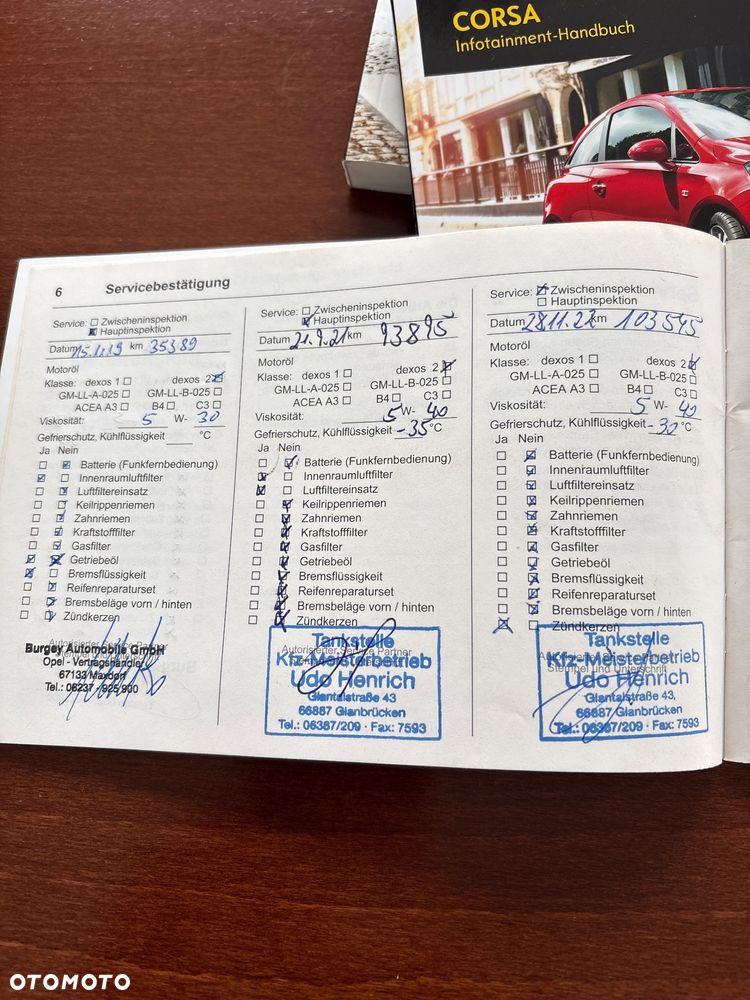 CORSA
Infotainment-Handbuch
6 Servicebestätigung
Service: Zwischeninspektion
Hauptinspektion
Datum 15.1.19 km 35389
Motoröl
Klasse: dexos 1 dexos 2
GM-LL-A-025 GM-LL-B-025
ACEA A3 B4 C3
Viskosität: 5 W- 30
Gefrierschutz, Kühlflüssigkeit °C
Ja Nein
Batterie (Funkfernbedienung)
Innenraumluftfilter
Luftfiltereinsatz
Keilrippenriemen
Zahnriemen
Kraftstofffilter
Gasfilter
Getriebeöl
Bremsflüssigkeit
Reifenreparaturset
Bremsbeläge vorn / hinten
Zündkerzen
Burgey Automobile GmbH
Opel - Vertragshändler
67133 Maxdorf
Tel.: 06237 / 925 900
Service: Zwischeninspektion
Hauptinspektion
Datum 21.9.21 km 93895
Motoröl
Klasse: dexos 1 dexos 2
GM-LL-A-025 GM-LL-B-025
ACEA A3 B4 C3
Viskosität: 5 W- 40
Gefrierschutz, Kühlflüssigkeit -35 °C
Ja Nein
Batterie (Funkfernbedienung)
Innenraumluftfilter
Luftfiltereinsatz
Keilrippenriemen
Zahnriemen
Kraftstofffilter
Gasfilter
Getriebeöl
Bremsflüssigkeit
Reifenreparaturset
Bremsbeläge vorn / hinten
Zündkerzen
Autorisierter Service Partner
Tankstelle
Kfz-Meisterbetrieb
Udo Henrich
Glantalstraße 43
66887 Glanbrücken
Tel.: 06387/209 · Fax: 7593
Service: Zwischeninspektion
Hauptinspektion
Datum 28.11.22 km 103545
Motoröl
Klasse: dexos 1 dexos 2
GM-LL-A-025 GM-LL-B-025
ACEA A3 B4 C3
Viskosität: 5 W- 40
Gefrierschutz, Kühlflüssigkeit -30 °C
Ja Nein
Batterie (Funkfernbedienung)
Innenraumluftfilter
Luftfiltereinsatz
Keilrippenriemen
Zahnriemen
Kraftstofffilter
Gasfilter
Getriebeöl
Bremsflüssigkeit
Reifenreparaturset
Bremsbeläge vorn / hinten
Zündkerzen
Stempel und Unterschrift
Tankstelle
Kfz-Meisterbetrieb
Udo Henrich
Glantalstraße 43,
66887 Glanbrücken
Tel.: 06387/209 · Fax: 7593
OTOMOTO